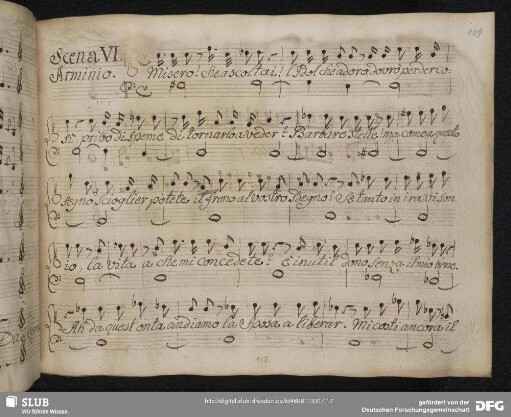 109
Scena VI.
Arminio.
Misero! che ascoltai! l'Idol che adoro, dovrò perder co-
sì privo di speme di tornarlo a veder? Barbare stelle! ma come a questo
segno scioglier potete il freno al vostro sdegno! Se tanto in ira vi son
io, la vita a che mi concedete? è inutil dono senza il mio bene.
Ah da quest'onta andiamo la sposa a liberar. Mi costi ancora il
113
SLUB
Wir führen Wissen.
http://digital.slub-dresden.de/
gefördert von der
Deutschen Forschungsgemeinschaft
DFG